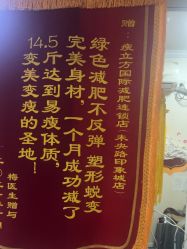 赠：瘦立方国际减肥连锁店（未央路印象城店）
绿色减肥不反弹 塑形蜕变
完美身材，一个月成功减了
14.5斤达到易瘦体质，
变美变瘦的圣地！
梅医生赠与